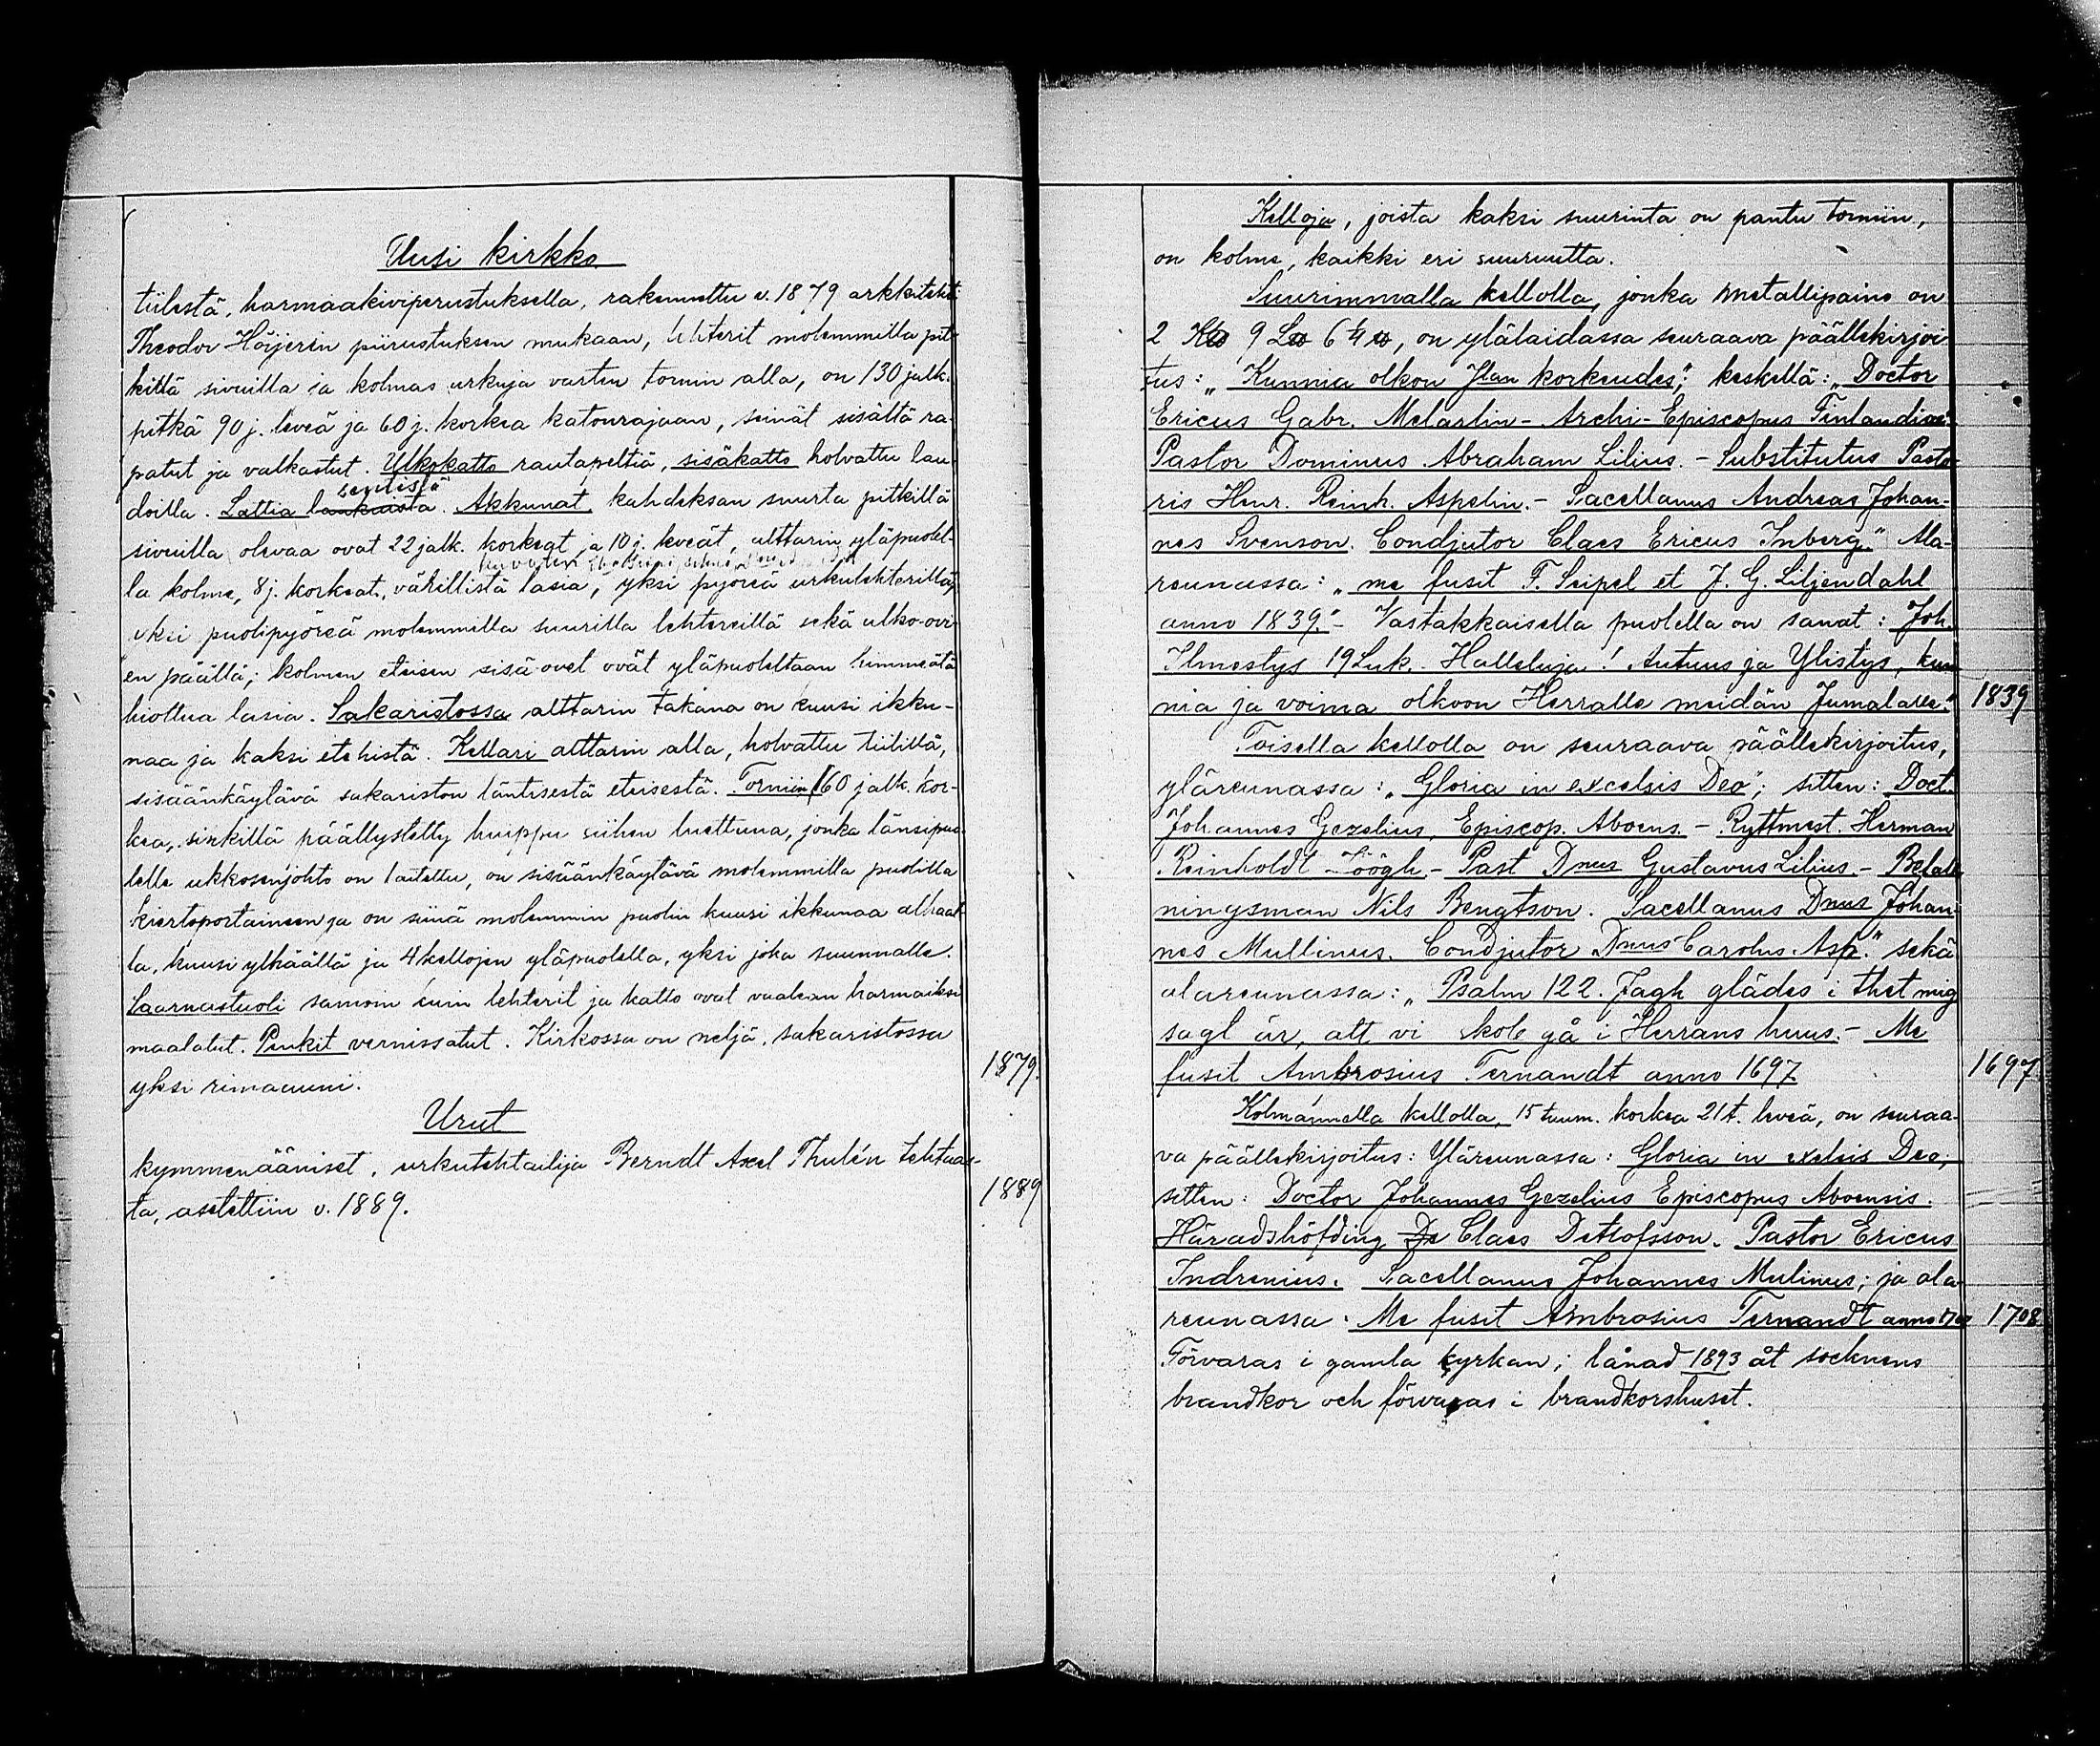 Uusi kirkko
tiilestä, harmaakiviperustuksella, rakennettu v. 1879 arkkitehti
Theodor Höijerin piirustuksen mukaan, lehterit molemmilla pit-
killä sivuilla ja kolmas urkuja varten tornin alla, on 130 jalk.
pitkä 90 j. leveä ja 60 j. korkea katonrajaan, seinät sisältä ra-
patut ja valkastut. Ulkokatto rautapeltiä, sisäkatto holvattu lau-
doilla. Lattia lankuista sentistä. Akkunat, kahdeksan suurta pitkillä
sivuilla olevaa ovat 22 jalk. korkeat ja 10 j. leveät, alttarin yläpuolel-
la kolme, 8 j. korkeat, värillistä lasia, yksi pyöreä urkulehterillä,
yksi puolipyöreä molemmilla suurilla lehtereillä sekä ulko-ovi-
en päällä; kolmen eteisen sisä ovet ovat yläpuoleltaan himmeätä
hiottua lasia. Sakaristossa alttarin takana on kuusi ikku-
naa ja kaksi etehistä. Kellari alttarin alla, holvattu tiilillä,
sisäänkäytävä sakariston läntisestä eteisestä. Torniin, 160 jalk. kor-
kea, sinkillä päällystetty huippu siihen luettuna, jonka länsipuo-
lelle ukkosenjohto on laitettu, on sisäänkäytävä molemmilla puolilla
kiertoportaineen ja on siinä molemmin puolin kuusi ikkunaa alhaal-
la, kuusi ylhäällä ja 4 kellojen yläpuolella, yksi joka suunnalle.
Saarnastuoli samoin kuin lehterit ja katto ovat vaalean harmaiksi
maalatut. Penkit vernissatut. Kirkossa on neljä, sakaristossa
yksi rimauuni. 1879.
Urut
kymmenääniset, urkutehtailija Berndt Axel Thulén tehtaas-
ta, asetettiin v. 1889. 1889
Kelloja, joista kaksi suurinta on pantu torniin,
on kolme, kaikki eri suuruutta.
Suurimmalla kellolla, jonka metallipaino on
2 9 6 , on ylälaidassa seuraava päällekirjoi-
tus: „Kunnia olkon Jlan korkeudes"; keskellä: „Doctor
Ericus Gabr. Melartin - Archi-Episcopus Finlandiae
Pastor Dominus Abraham Lilius. - Substitutus Pasto-
ris Henr. Reinh. Aspelin. - Sacellanus Andreas Johan-
nes Svenson. Condjutor Claes Ericus Inberg." Ala-
reunassa: „me fusit F. Seipel et J. G. Liljendahl
anno 1839." - Vastakkaisella puolella on sanat: Joh.
Ilmestys 19 Luk. Halleluja! Autuus ja Ylistys, kun-
nia ja voima olkoon Herralle meidän Jumalalle." 1839
Toisella kellolla on seuraava päällekirjoitus,
yläreunassa: „Gloria in excelsis Deo"; sitten: Doct.
Johannes Gezelius, Episcop. Aboens. - Ryttmest. Herman
Reinholdt - Past Dnus Gustavus Lilius. - Befall-
ningsman Nils Bengtson. Sacellanus Dnus Johan-
nes Mullinus. Condjutor Dnus Carolus Asp." sekä
alareunassa: „Psalm 122. Jagh glädes i thet mig
sagt är, att vi skole gå i Herrans huus. - Me
fusit Ambrosius Fernandt anno 1697 1697
Kolmannella kellolla, 15 tuum. korkea 21 t. leveä, on seuraa-
va päällekirjoitus: Yläreunassa: Gloria in exelsis Deo;
sitten: Doctor Johannes Gezelius Episcopus Aboensis.
Häradshöfding De Claes Detlofsson. Pastor Ericus
Indrenius. Sacellanus Johannes Mulinus; ja ala-
reunassa: Me fusit Ambrosius Fernandt anno 1708 1708
Förvaras i gamla kyrkan; lånad 1893 åt socknens
brandkor och förvaras i brandkorshuset.